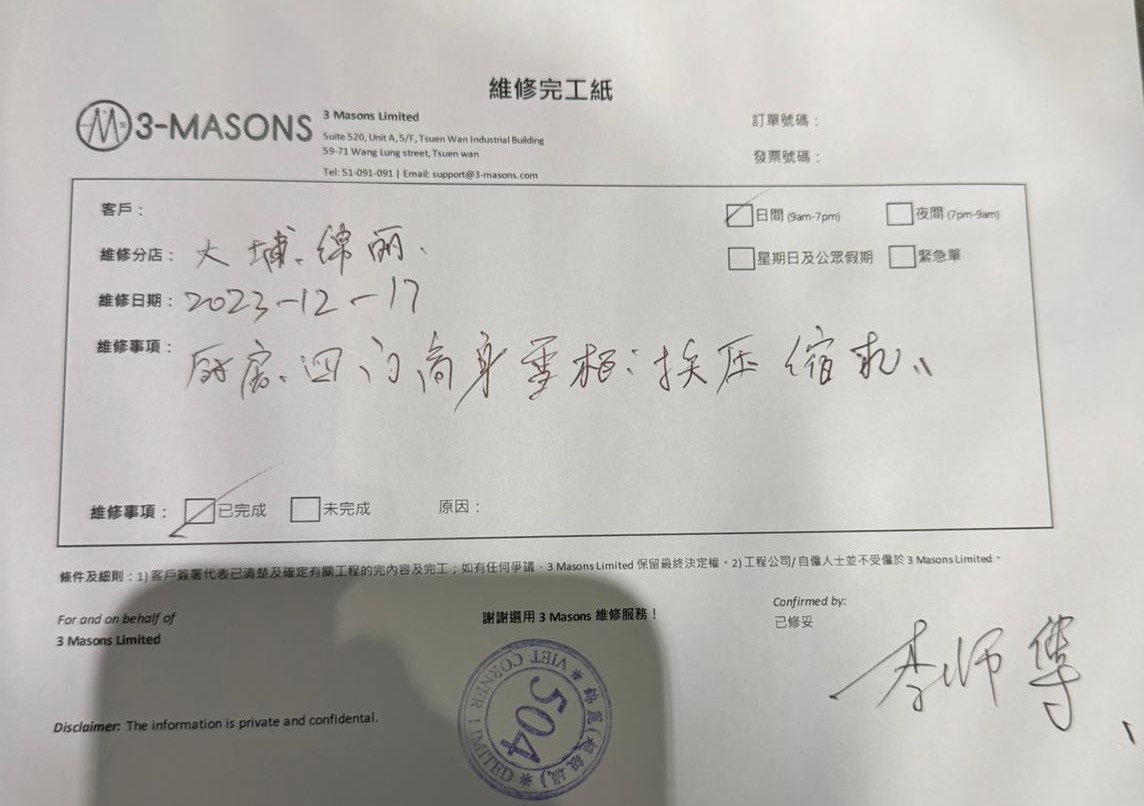 維修完工紙
3-MASONS
3 Masons Limited
Suite 520, Unit A, 5/F, Tsuen Wan Industrial Building
59-71 Wang Lung street, Tsuen wan
Tel: 51-091-091 | Email: support@3-masons.com
訂單號碼：
發票號碼：
客戶：
日間 (9am-7pm) 夜間 (7pm-9am)
維修分店：大埔、綿丽、
星期日及公眾假期 緊急單
維修日期：2023-12-17
維修事項：厨房、四门高身雪柜：换压缩机
維修事項： 已完成 未完成 原因：
條件及細則：1) 客戶簽署代表已清楚及確定有關工程的完內容及完工；如有任何爭議，3 Masons Limited 保留最終決定權。2) 工程公司/自僱人士並不受僱於 3 Masons Limited。
For and on behalf of
3 Masons Limited
謝謝選用 3 Masons 維修服務！
Confirmed by:
已修妥
李师傅
Disclaimer: The information is private and confidential.
VIET CORNER LIMITED
504